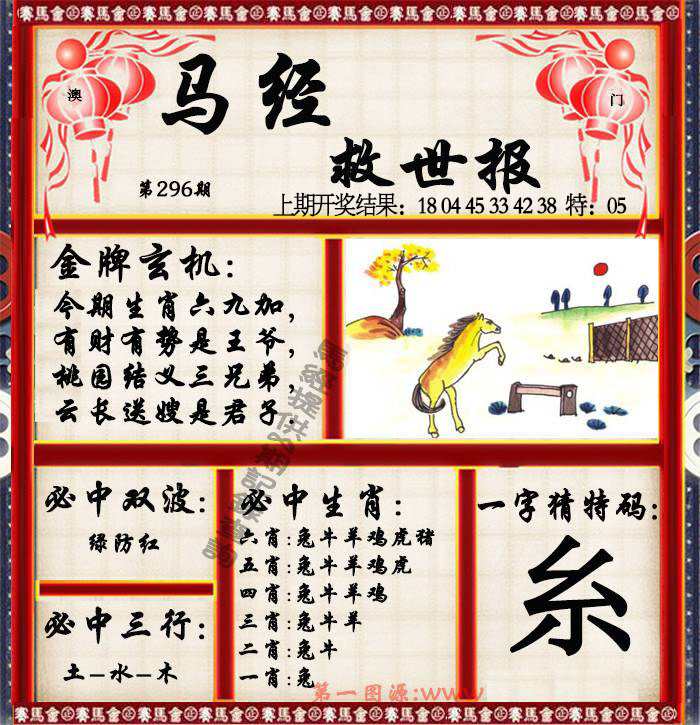 賽馬會
澳
门
马经
救世报
第296期
上期开奖结果：18 04 45 33 42 38 特：05
金牌玄机：
今期生肖六九加，
有财有势是王爷，
桃园结义三兄弟，
云长送嫂是君子.
必中双波：
绿防红
必中三行：
土-水-木
必中生肖：
六肖:兔牛羊鸡虎猪
五肖:兔牛羊鸡虎
四肖:兔牛羊鸡
三肖:兔牛羊
二肖:兔牛
一肖:兔
一字猜特码：
糸
第一图源:www